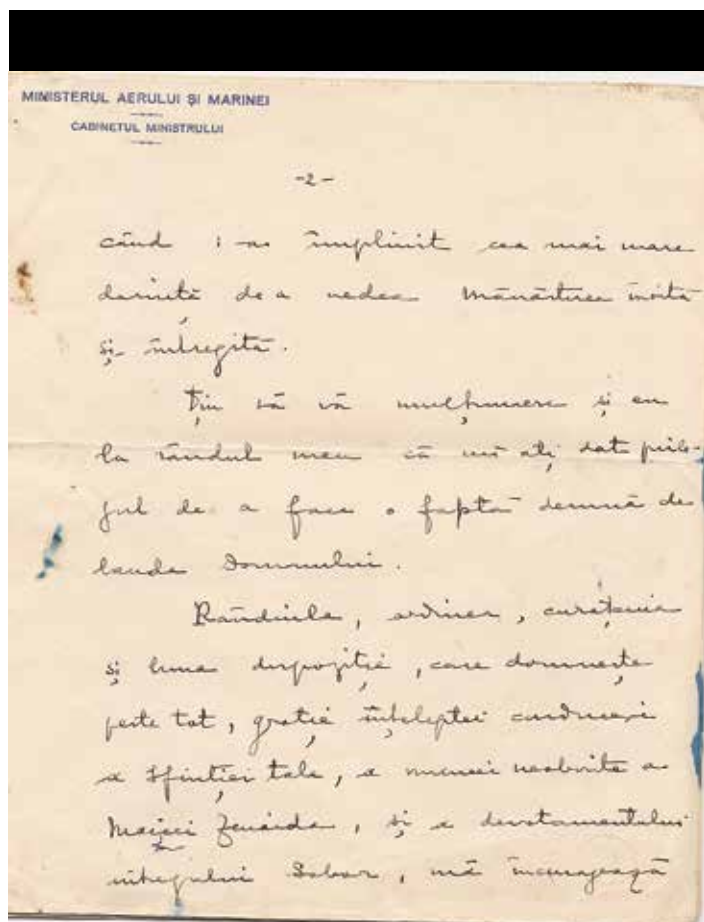 MINISTERUL AERULUI ȘI MARINEI
CABINETUL MINISTRULUI
-2-
când i s-a împlinit cea mai mare
dorință de a vedea Mănăstirea
și întregită.
Țin să vă mulțumesc și eu
la rândul meu că mi-ați dat prile-
jul de a face o faptă demnă de
lauda Domnului.
Rânduiala, ordinea, curățenia
și buna dispoziție, care domnește
peste tot, grație înțeleptei conduceri
a Sfinției tale, a muncii neobosite a
Maicii Zenaida, și a devotamentului
întregului Sobor, mă încurajează